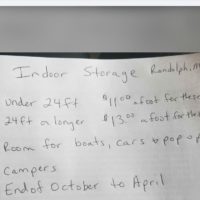 Indoor Storage Randolph,
under 24ft $11.00 a foot for these
24ft or longer $13.00 a foot for thes
Room for boats, cars & pop up
Campers
End of October to April